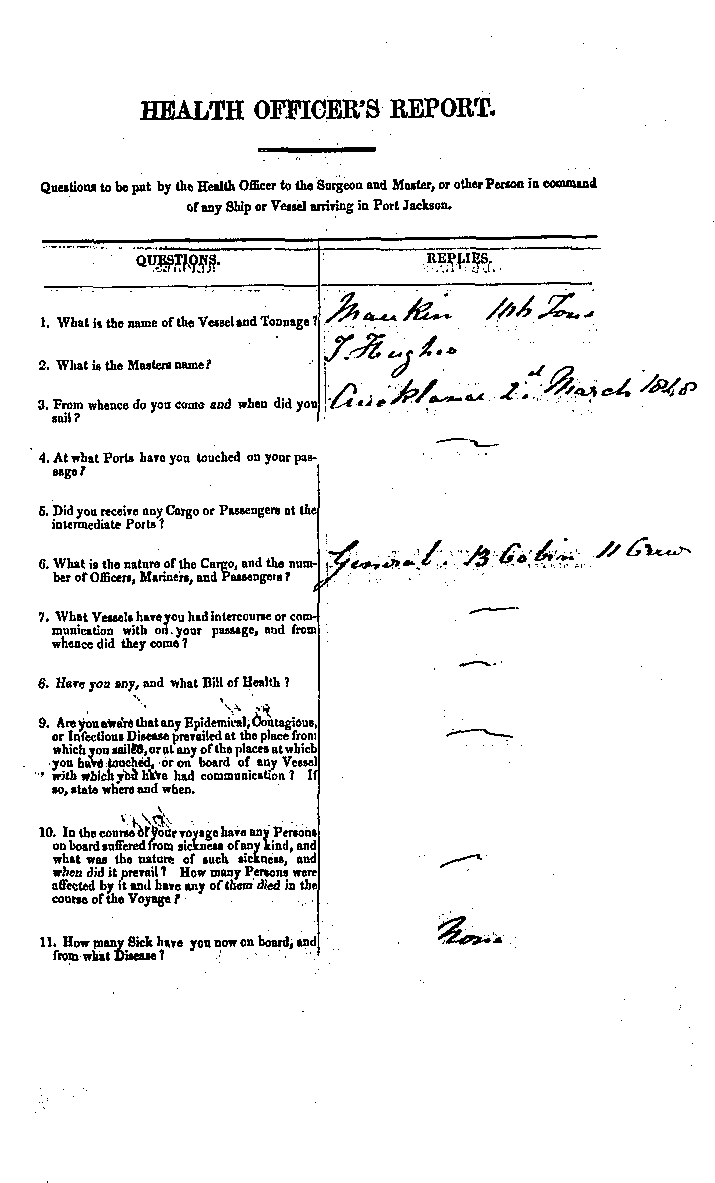 HEALTH OFFICER'S REPORT.
Questions to be put by the Health Officer to the Surgeon and Master, or other Person in command
of any Ship or Vessel arriving in Port Jackson.
QUESTIONS.
REPLIES.
1. What is the name of the Vessel and Tonnage?
Tons
2. What is the Masters name?
T. Hughes
3. From whence do you come and when did you
sail?
Auckland 2d. March 1848
4. At what Ports have you touched on your pas-
sage?
5. Did you receive any Cargo or Passengers at the
intermediate Ports?
6. What is the nature of the Cargo, and the num-
ber of Officers, Mariners, and Passengers?
General. 13 Cabin 11 Crew
7. What Vessels have you had intercourse or com-
munication with on your passage, and from
whence did they come?
8. Have you any, and what Bill of Health?
9. Are you aware that any Epidemical, Contagious,
or Infectious Disease prevailed at the place from
which you sailed, or at any of the places at which
you have touched, or on board of any Vessel
with which you have had communication? If
so, state where and when.
10. In the course of your voyage have any Persons
on board suffered from sickness of any kind, and
what was the nature of such sickness, and
when did it prevail? How many Persons were
affected by it and have any of them died in the
course of the Voyage?
11. How many Sick have you now on board, and
from what Disease?
None